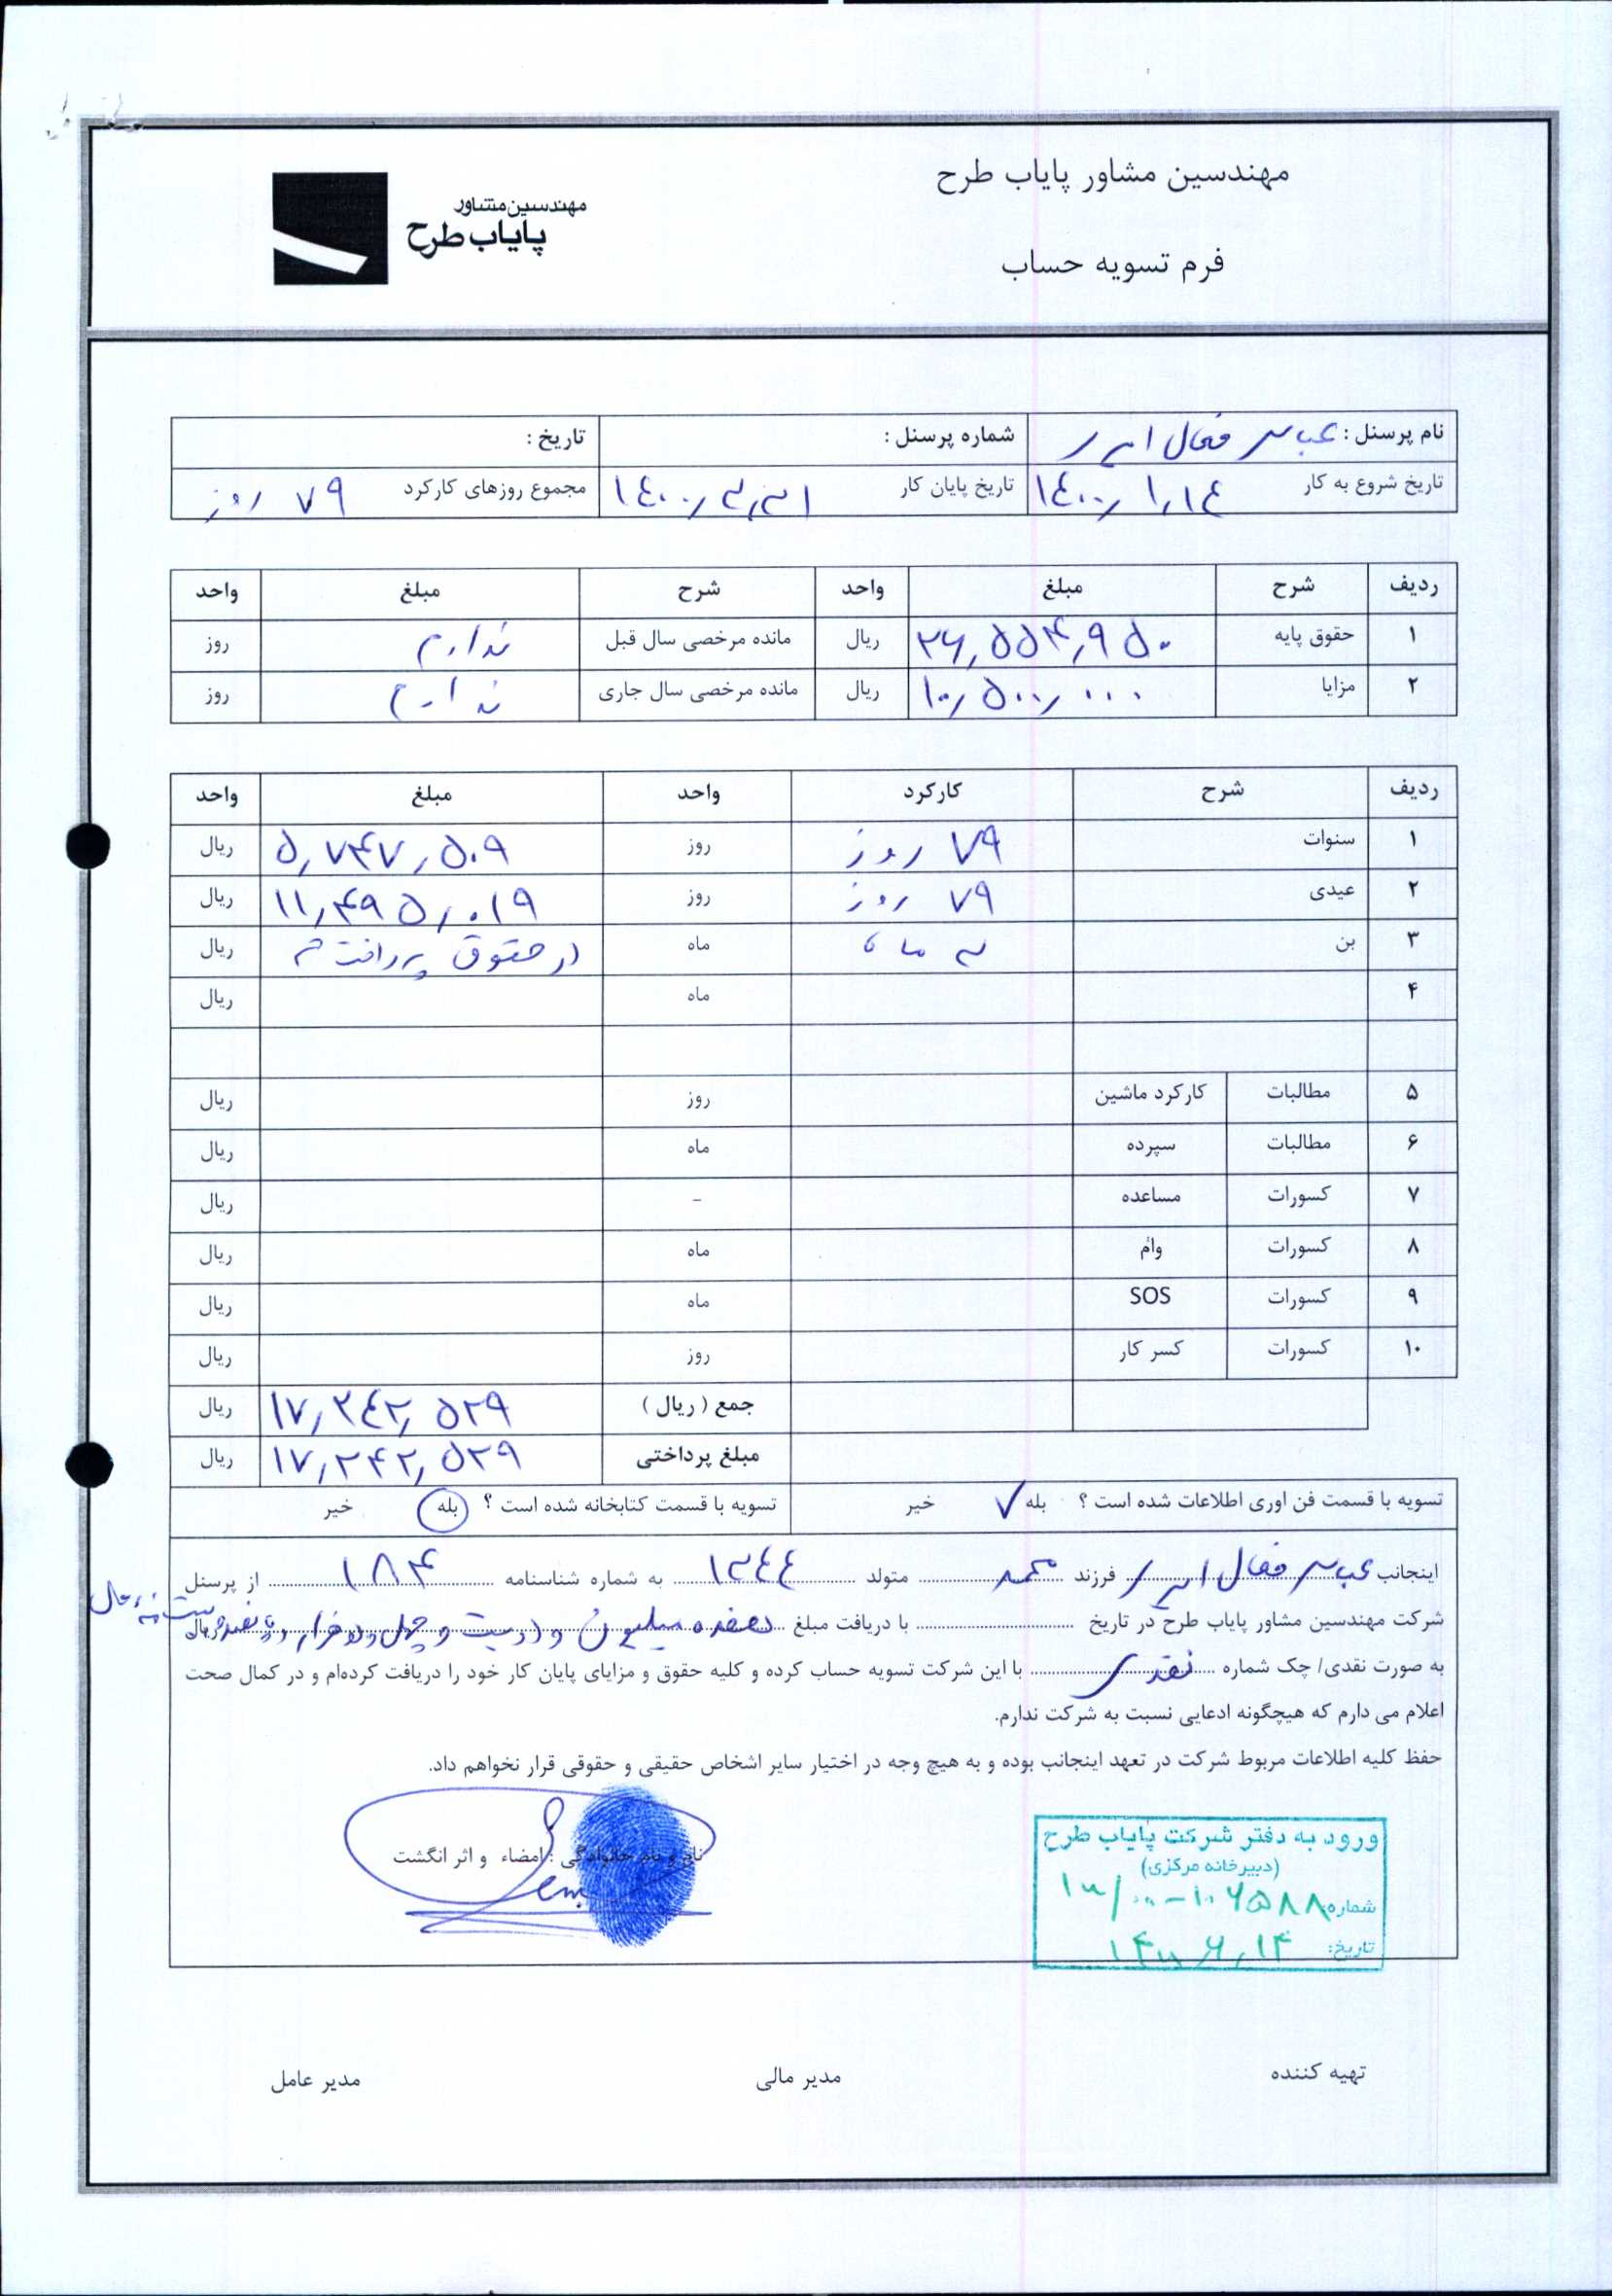 مهندسین مشاور پایاب طرح
مهندسین مشاور
پایاب طرح
فرم تسویه حساب
نام پرسنل : عباس فعال
شماره پرسنل :
تاریخ :
تاریخ شروع به کار ۱۴۰۰/۱/۱۴
تاریخ پایان کار ۱۴۰۰/۳/۳۱
مجموع روزهای کارکرد ۷۹ روز
ردیف شرح مبلغ واحد شرح مبلغ واحد
۱ حقوق پایه ۲۶,۵۵۴,۹۵۰ ریال مانده مرخصی سال قبل ندارم روز
۲ مزایا ۱۰,۵۰۰,۰۰۰ ریال مانده مرخصی سال جاری ندارم روز
ردیف شرح کارکرد واحد مبلغ واحد
۱ سنوات ۷۹ روز روز ۵,۷۴۷,۵۰۹ ریال
۲ عیدی ۷۹ روز روز ۱۱,۴۹۵,۰۱۹ ریال
۳ بن ۳ ماه ماه در حقوق پرداخت شد ریال
۴ ماه ریال
۵ مطالبات کارکرد ماشین روز ریال
۶ مطالبات سپرده ماه ریال
۷ کسورات مساعده - ریال
۸ کسورات وام ماه ریال
۹ کسورات SOS ماه ریال
۱۰ کسورات کسر کار روز ریال
جمع ( ریال ) ۱۷,۲۴۲,۵۲۹ ریال
مبلغ پرداختی ۱۷,۲۴۲,۵۲۹ ریال
تسویه با قسمت فن اوری اطلاعات شده است ؟ بله ✓ خیر تسویه با قسمت کتابخانه شده است ؟ بله خیر
اینجانب عباس فعال فرزند محمد متولد ۱۳۴۴ به شماره شناسنامه ۱۸۴ از پرسنل
شرکت مهندسین مشاور پایاب طرح در تاریخ با دریافت مبلغ هفده میلیون و دویست و چهل و دو هزار و پانصد و بیست و نه ریال
به صورت نقدی/ چک شماره نقدی با این شرکت تسویه حساب کرده و کلیه حقوق و مزایای پایان کار خود را دریافت کرده‌ام و در کمال صحت
اعلام می دارم که هیچگونه ادعایی نسبت به شرکت ندارم.
حفظ کلیه اطلاعات مربوط شرکت در تعهد اینجانب بوده و به هیچ وجه در اختیار سایر اشخاص حقیقی و حقوقی قرار نخواهم داد.
نام و نام خانوادگی : امضاء و اثر انگشت
ورود به دفتر شرکت پایاب طرح
(دبیرخانه مرکزی)
شماره:
تاریخ:
تهیه کننده
مدیر مالی
مدیر عامل